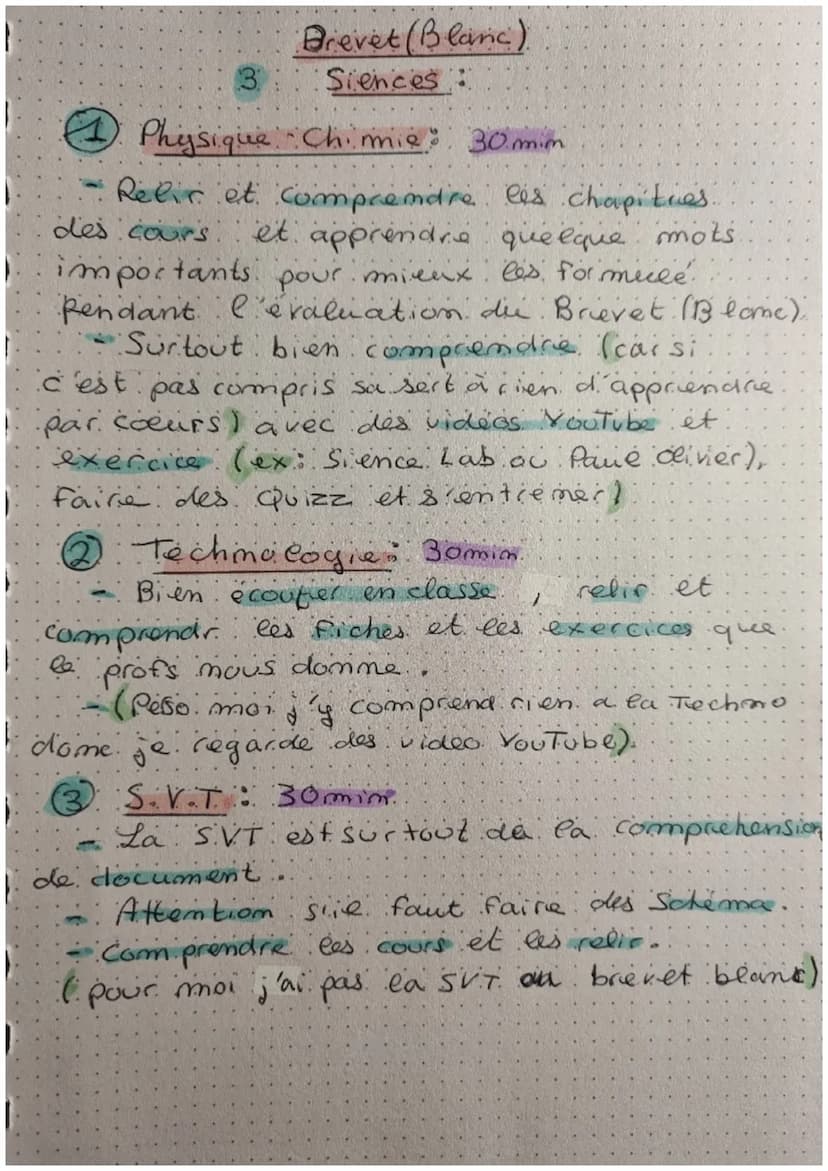 Brevet (Blanc)
3 Siences :
1 Physique-Chimie : 30 min
- Relir et comprendre les chapitres
des cours et apprendre quelque mots
importants pour mieux les formulé
Pendant l'évaluation du Brevet (Blanc)
- Surtout bien comprendre (car si
c'est pas compris sa sert à rien d'apprendre
par coeurs) avec des vidéos YouTube et
exercice (ex: Sience Lab ou Paul Olivier),
faire des Quizz et s'entrener)
2 Technologie : 30min
- Bien écouter en classe , relir et
comprendr les fiches et les exercices que
le profs nous donne .
- (Perso moi j'y comprend rien a la Techno
donc je regarde des video YouTube).
3 S.V.T : 30min
- La SVT est surtout de la comprehension
de document .
- Attention s'il faut faire des Schéma.
- Comprendre les cours et les relir.
(pour moi j'ai pas la SVT au brevet blanc)